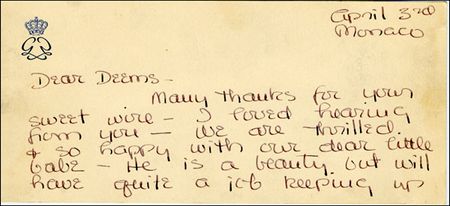 April 3rd
Monaco
Dear Deems -
Many thanks for your
sweet wire - I loved hearing
from you - We are thrilled
& so happy with our dear little
babe - He is a beauty but will
have quite a job keeping up